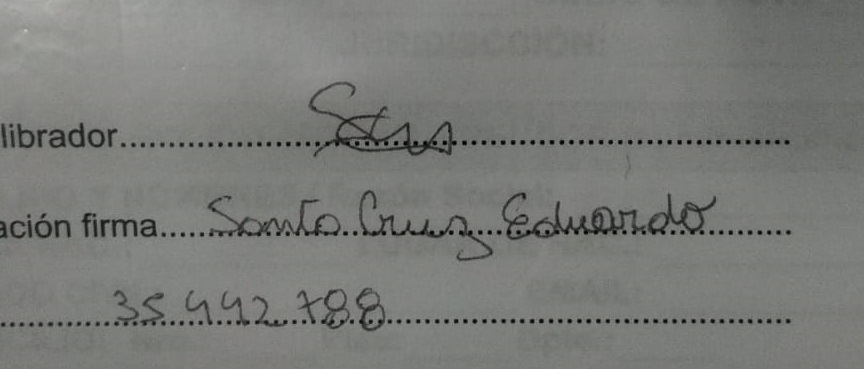 librador
ación firma Santa Cruz Eduardo
35 442 788